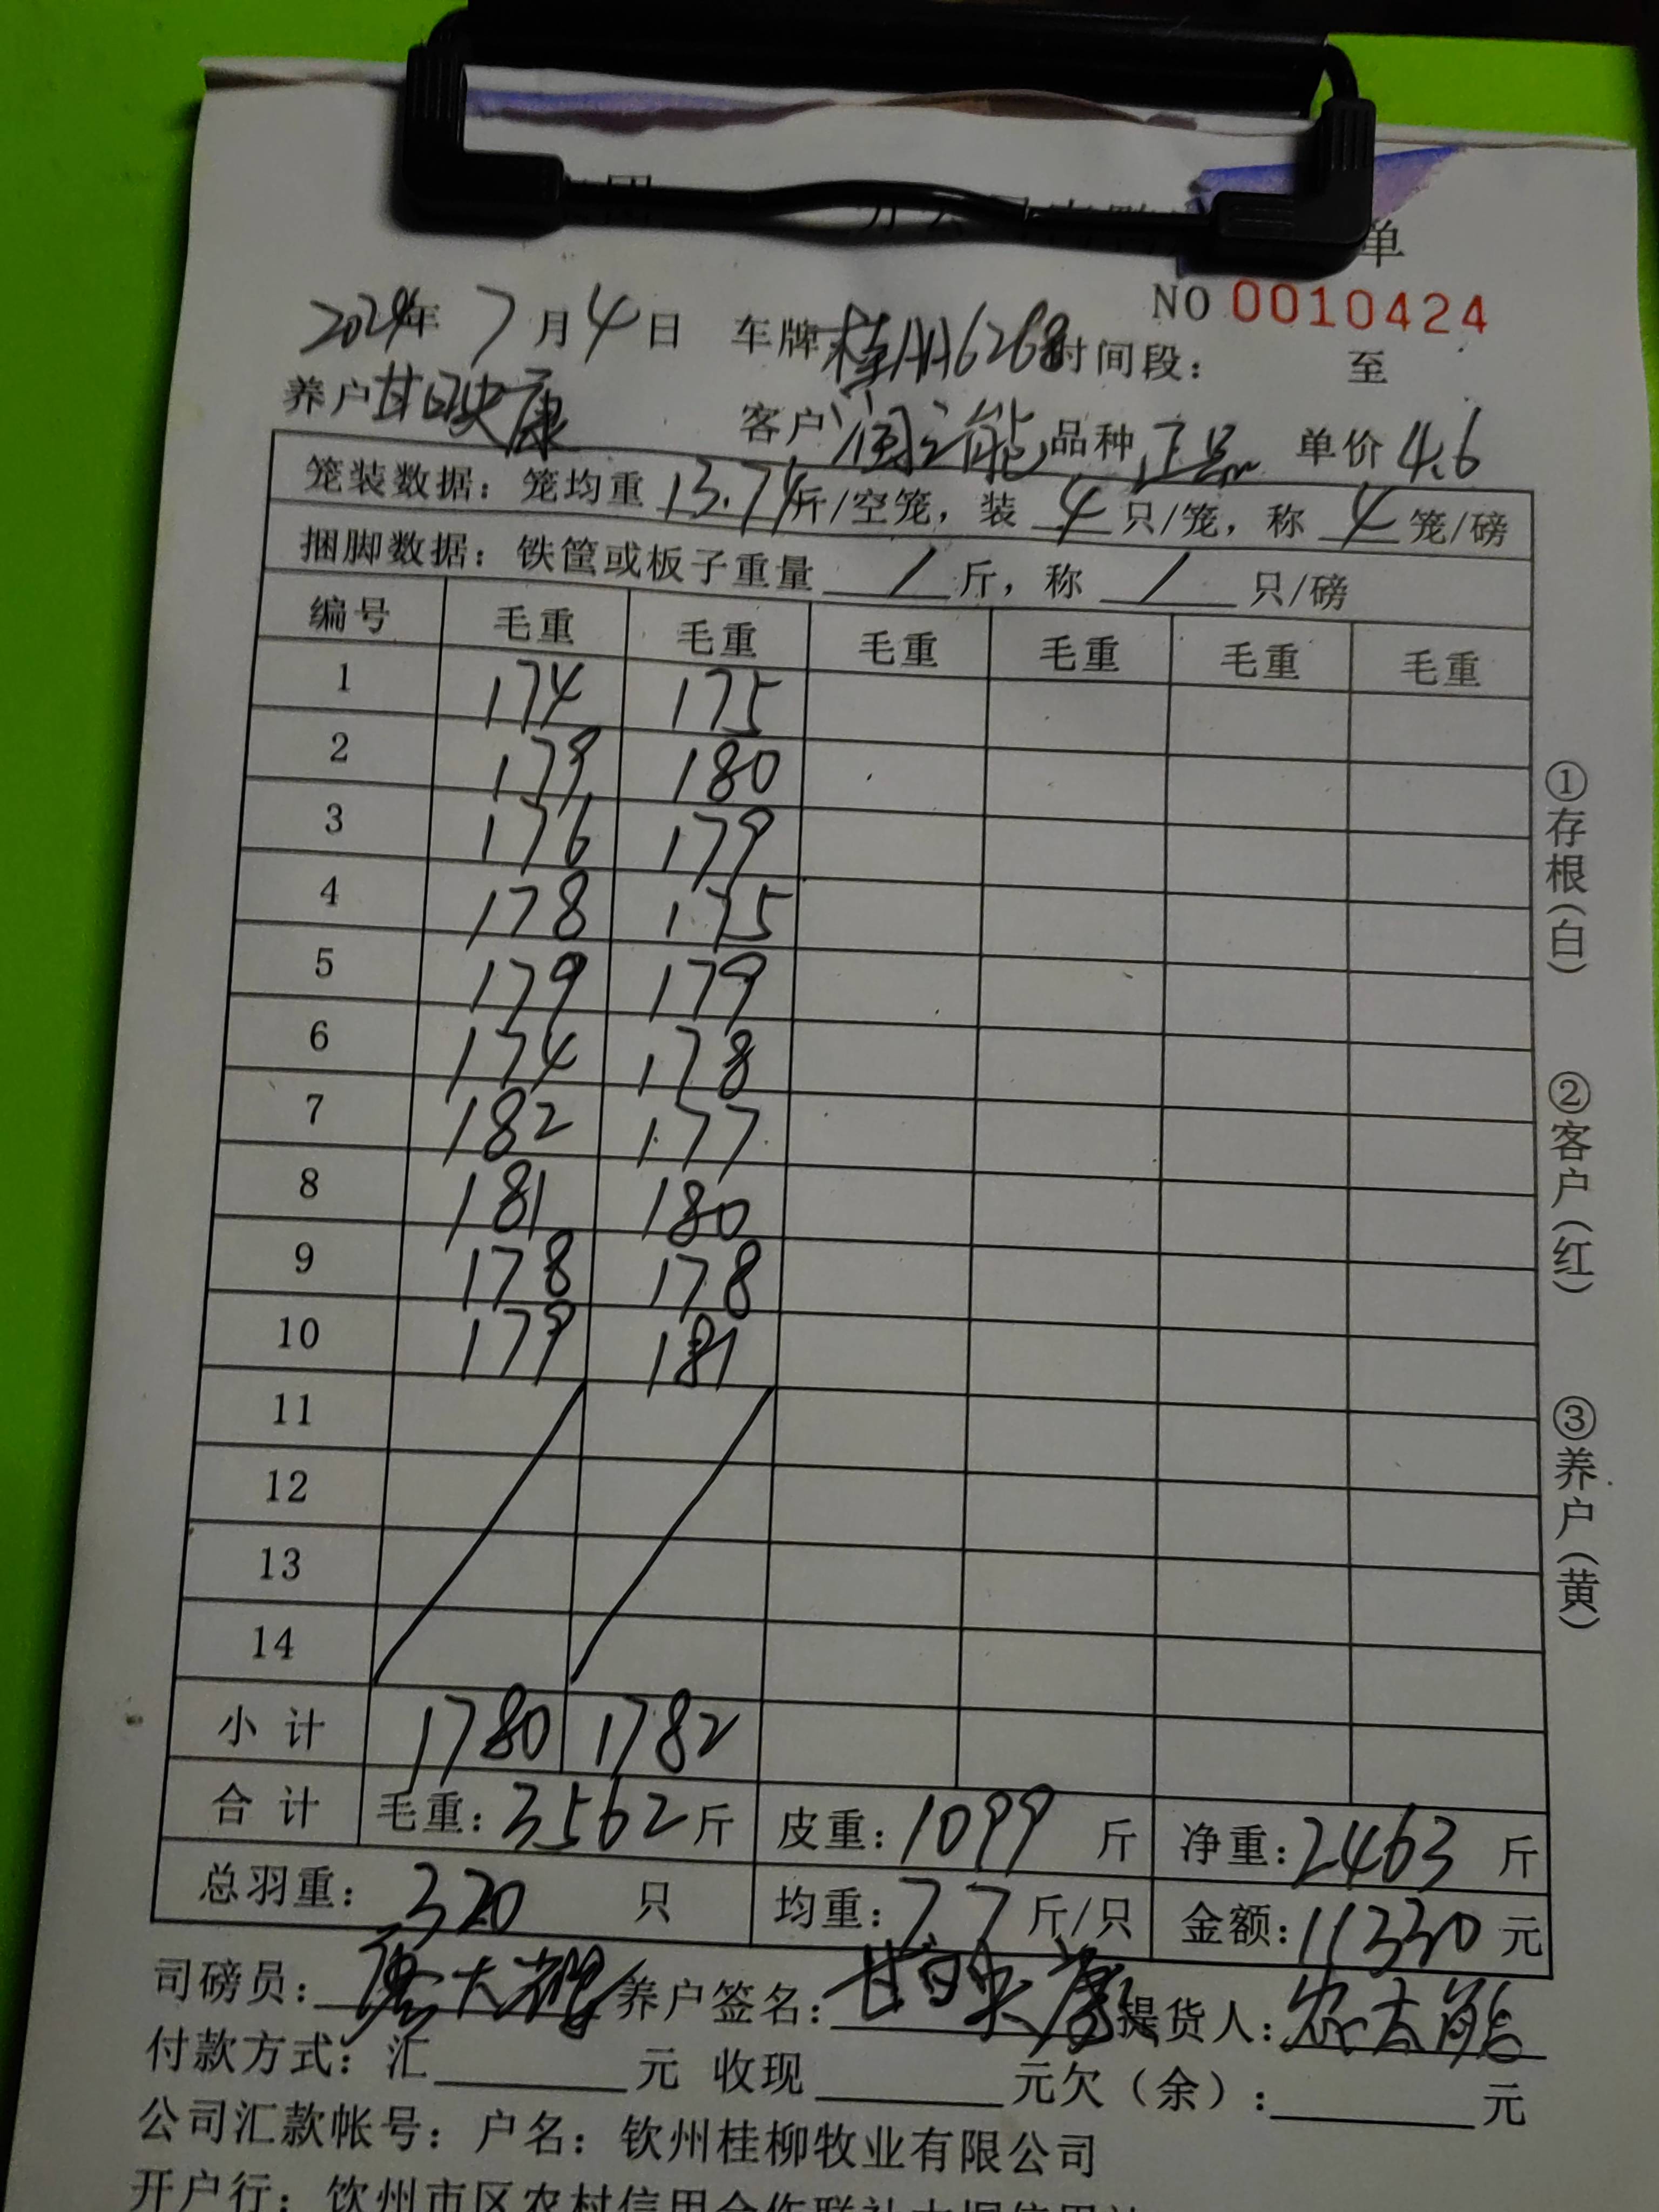 单
NO 0010424
2024年 7月4日 车牌桂A16268时间段： 至
养户甘映康 客户 能 品种 正品 单价 4.6
笼装数据：笼均重 13.74 斤/空笼，装 4 只/笼，称 4 笼/磅
捆脚数据：铁筐或板子重量 / 斤，称 / 只/磅
编号 毛重 毛重 毛重 毛重 毛重 毛重
1 174 175
2 179 180
3 176 179
4 178 175
5 179 179
6 174 178
7 182 177
8 181 180
9 178 178
10 179 181
11
12
13
14
小计 1780 1782
合计 毛重：3562斤 皮重：1099 斤 净重：2463 斤
总羽重：320 只 均重：7.7斤/只 金额：11330元
①存根（白）
②客户（红）
③养户（黄）
司磅员： 养户签名：甘映康 提货人：农大能
付款方式：汇 元 收现 元欠（余）： 元
公司汇款帐号：户名：钦州桂柳牧业有限公司
开户行：钦州市区农村信用合作联社